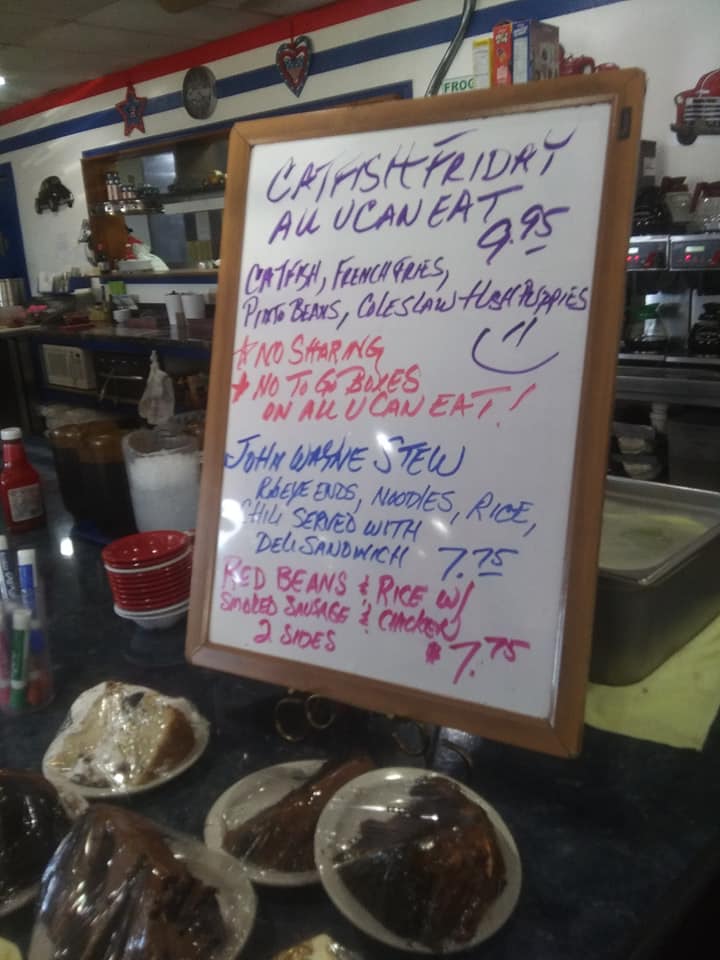 FROG
CATFISH FRIDAY
ALL U CAN EAT
9.95
CATFISH, FRENCH FRIES,
PINTO BEANS, COLESLAW + HUSH PUPPIES
* NO SHARING
* NO TO GO BOXES
ON ALL U CAN EAT!
JOHN WAYNE STEW
RIBEYE ENDS, NOODLES, RICE,
CHILI SERVED WITH
DELI SANDWICH 7.75
RED BEANS & RICE W/
SMOKED SAUSAGE & CHICKEN
2 SIDES $7.75